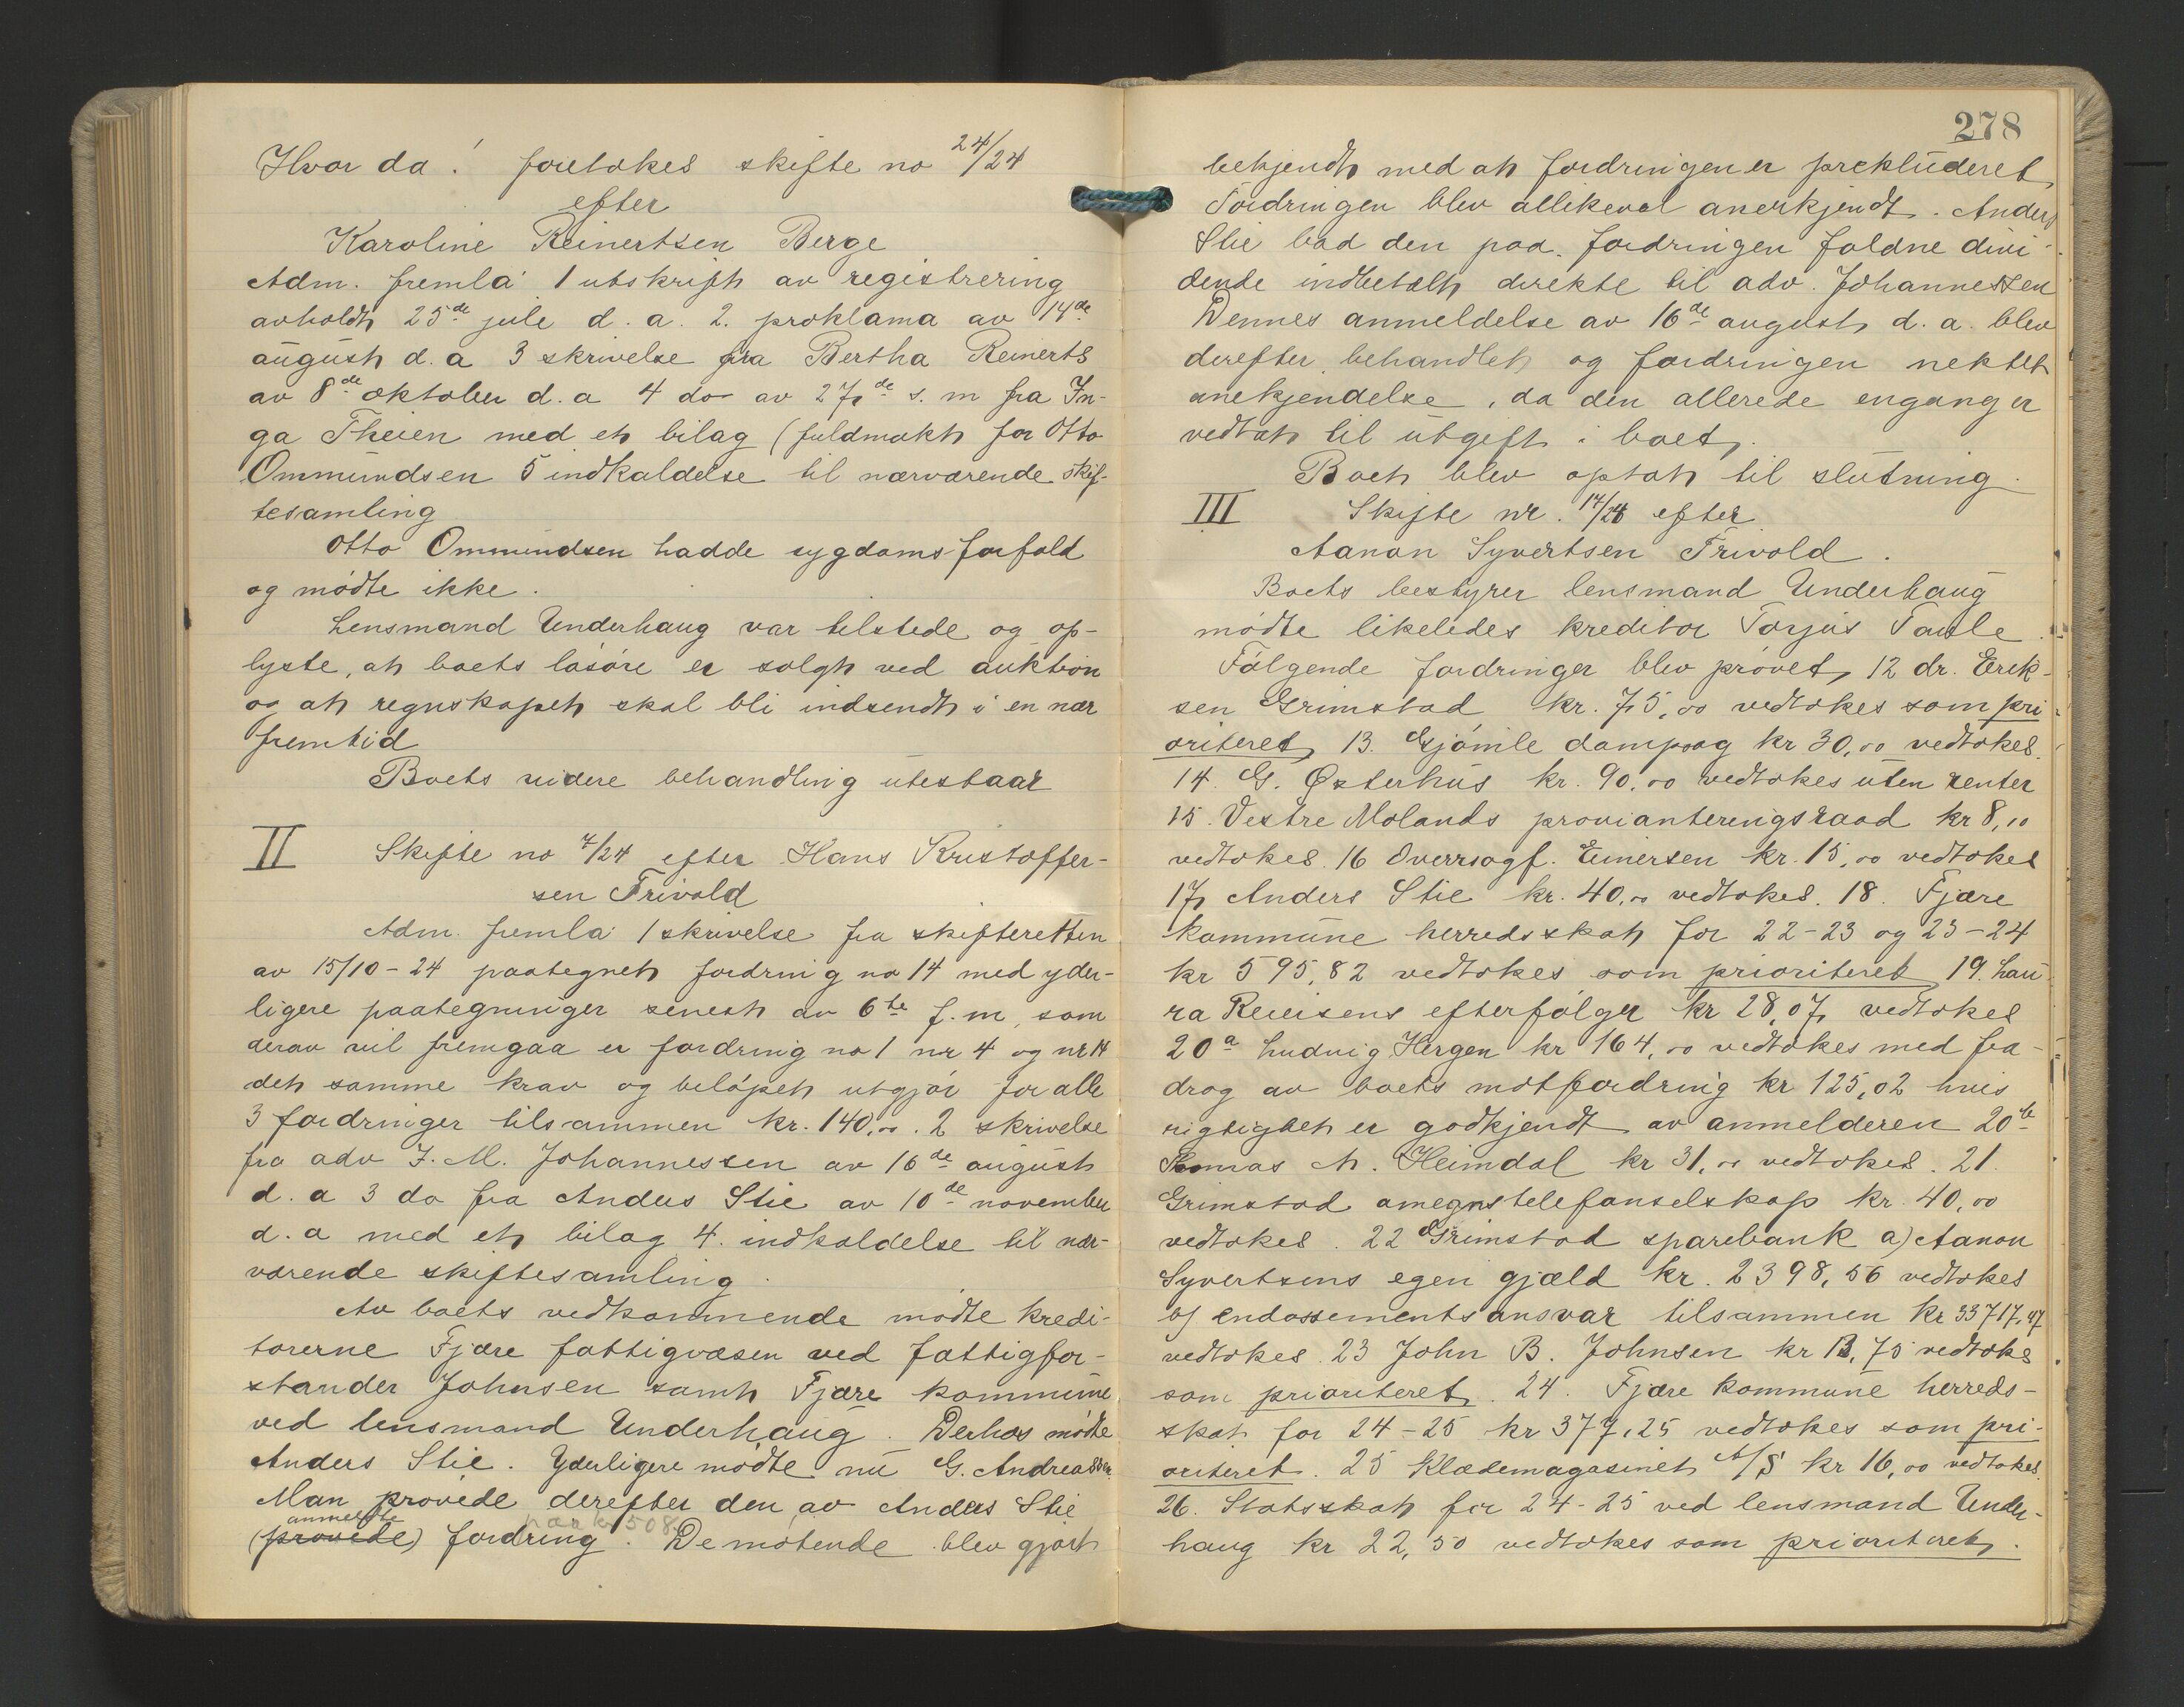 Hvor da! foretokes skifte no 24/24
efter
Karoline Reinertsen Berge
Adm. fremla 1 utskrift av registrering
avholdt 25de juli d. a. 2. proklama av 14de
august d. a 3 skrivelse fra Bertha Reinerts
av 8de oktober d. a 4 do av 27de s. m fra In-
ga Theien med et bilag (fuldmakt for Otto
Ommundsen 5 indkaldelse til nærværende skif-
tesamling
Otto Ommundsen hadde sygdomsforfald
og mødte ikke.
Lensmand Underhaug var tilstede og op-
lyste, at boets løsøre er solgt ved auktion
og at regnskapet skal bli indsendt i en nær
fremtid
Boets videre behandling utestaar
II Skifte no 7/24 efter Hans Kristoffer-
sen Trivold
Adm. fremla 1 skrivelse fra skifteretten
av 15/10-24 paategnet fordring no 14 med yder-
ligere paategninger senest av 6te f. m, som
derav vil fremgaa er fordring no 1 nr 4 og nr 14
det samme krav og beløpet utgjør for alle
3 fordringer tilsammen kr. 140,00. 2 skrivelse
fra adv J. M. Johannessen av 16de august
d. a 3 do fra Anders Stie av 10de november
d. a med et bilag 4. indkaldelse til nær-
værende skiftesamling.
Av boets vedkommende mødte kredi-
torerne Fjære fattigvæsen ved fattigfor-
stander Johnsen samt Fjære kommune
ved lensmand Underhaug. Derhos mødte
Anders Stie. Yderligere mødte nu G. Andreassen.
Man prøvede derefter den av Anders Stie
anmeldte paa kr 508
(prøvede) fordring. De møtende blev gjort
278
bekjendt med at fordringen er prekluderet
Fordringen blev allikevel anerkjendt. Anders
Stie bad den paa fordringen faldne divi-
dende indbetalt direkte til adv. Johannessen
Dennes anmeldelse av 16de august d. a. blev
derefter behandlet og fordringen nektet
anekjendelse, da den allerede engang er
vedtat til utgift i boet.
Boet blev optat til slutning.
III Skifte nr. 17/24 efter
Aanon Syvertsen Trivold.
Boets bestyrer lensmand Underhaug
mødte likeledes kreditor Torjus Taule.
Følgende fordringer blev prøvet, 12 dr. Erek-
sen Grimstad kr. 75,00 vedtokes som pri-
oriteret, 13. Gjømle dampsag kr 30,00 vedtokes.
14. G. Østerhus kr. 90,00 vedtokes uten renter
15. Vestre Molands provianteringsraad kr 8,10
vedtokes. 16 Overrsagf. Einersen kr. 15,00 vedtokes
17 Anders Stie kr. 40,00 vedtokes. 18. Fjære
kommune herredsskat for 22-23 og 23-24
kr 595,82 vedtokes som prioriteret 19. Lau-
ra Reiersens efterfølger kr 28,07 vedtokes
20a Ludvig Hergen kr 164,00 vedtokes med fra-
drag av boets motfordring kr 125,02 hvis
rigtighet er godkjendt av anmelderen 20b
Tomas A. Heimdal kr 31,00 vedtokes. 21.
Grimstad omegns telefonselskap kr. 40,00
vedtokes. 22 Grimstad sparebank a) Aanon
Syvertsens egen gjæld kr. 2398,56 vedtokes
b) endossementsansvar tilsammen kr 33717,47
vedtokes. 23 John B. Johnsen kr 13,75 vedtokes
som prioriteret. 24. Fjære kommune herreds-
skat for 24-25 kr 377,25 vedtokes som pri-
oriteret. 25 Klædemagasinet A/S kr 16,00 vedtokes.
26. Statsskat for 24-25 ved lensmand Under-
haug kr 22,50 vedtokes som prioriteret.